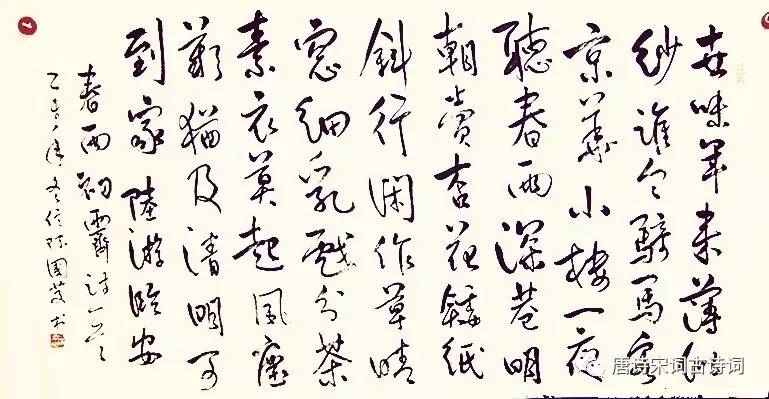 世味年来薄似
纱谁令骑马客
京華小楼一夜
聽春雨深巷明
朝賣杏花矮纸
斜行闲作草晴
窓细乳戏分茶
素衣莫起風塵
歎猶及清明可
到家陸游臨安
春雨初霽詩一首
唐诗宋词古诗词